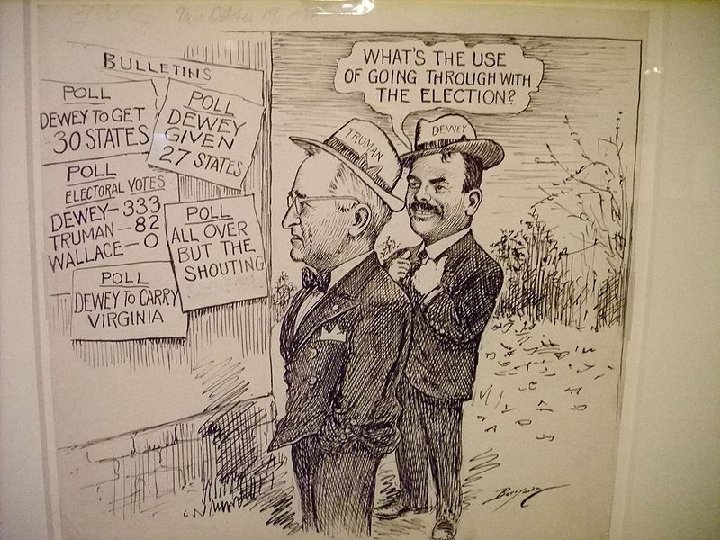 BULLETINS
POLL
DEWEY TO GET
30 STATES
POLL
DEWEY
GIVEN
27 STATES
POLL
ELECTORAL VOTES
DEWEY-333
TRUMAN-82
WALLACE-0
POLL
ALL OVER
BUT THE
SHOUTING
POLL
DEWEY TO CARRY
VIRGINIA
WHAT'S THE USE
OF GOING THROUGH WITH
THE ELECTION?
TRUMAN
DEWEY
Berryman